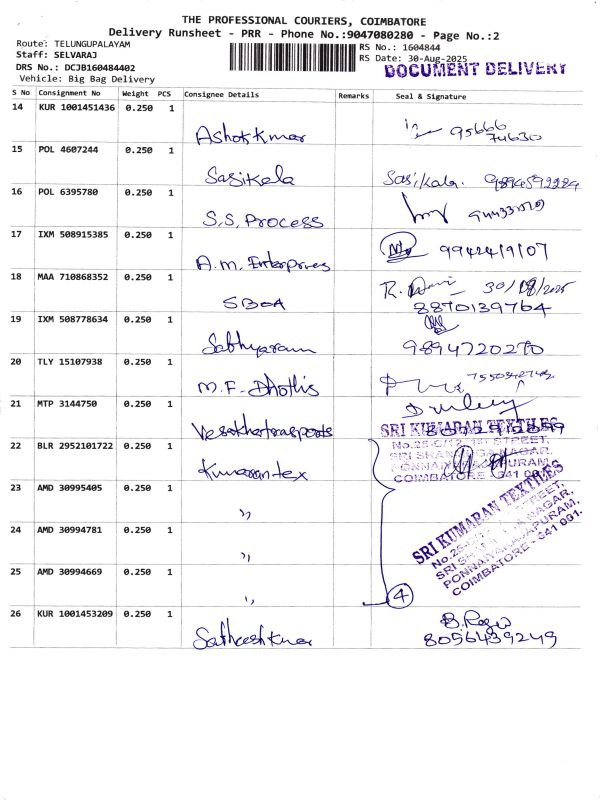 THE PROFESSIONAL COURIERS, COIMBATORE
Delivery Runsheet - PRR - Phone No.:9047080280 - Page No.:2
Route: TELUNGUPALAYAM
Staff: SELVARAJ
DRS No.: DCJB160484402
Vehicle: Big Bag Delivery
RS No.: 1604844
RS Date: 30-Aug-2025
DOCUMENT DELIVERY
S No Consignment No Weight PCS Consignee Details Remarks Seal & Signature
14 KUR 1001451436 0.250 1
Ashok kmar 95666
74630
15 POL 4607244 0.250 1
Sasikala Sasikala. 9894592284
16 POL 6395780 0.250 1
S.S. Process
17 IXM 508915385 0.250 1
A.M. Enterprises 9942419107
18 MAA 710868352 0.250 1
SBOA R. 30/08/2025
8870139764
19 IXM 508778634 0.250 1
Sathyaram 9894720270
20 TLY 15107938 0.250 1
M.F. Dhothis 7550342742
21 MTP 3144750 0.250 1
SRI KUMARAN TEXTILES
22 BLR 2952101722 0.250 1
Kumarantex
No.25-C/12, 1ST STREET,
COIMBATORE - 641 001.
23 AMD 30995405 0.250 1
,,
SRI KUMARAN TEXTILES
24 AMD 30994781 0.250 1
,,
PONNAIYARAJAPURAM,
COIMBATORE - 641 001.
25 AMD 30994669 0.250 1
,,
4
26 KUR 1001453209 0.250 1
Satheeshkmar B. Raju
8056439249